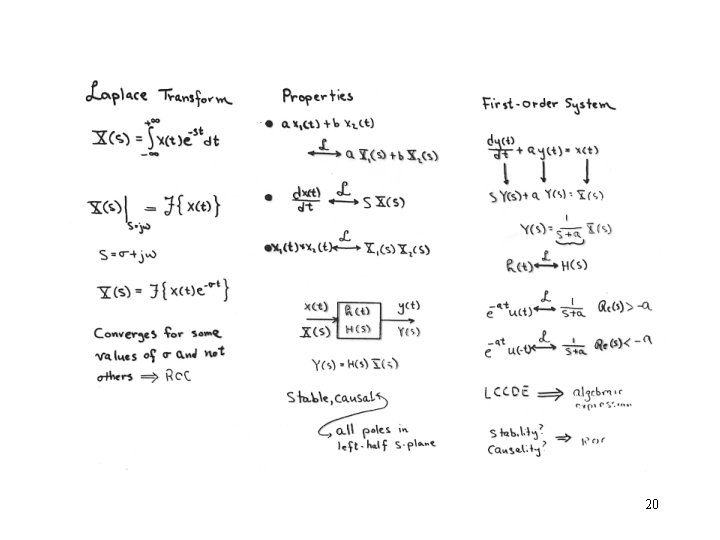 Laplace Transform
X(s) = ∫_{-∞}^{+∞} x(t)e^{-st} dt
X(s)|_{s=jω} = F{x(t)}
s = σ + jω
X(s) = F{x(t)e^{-σt}}
Converges for some
values of σ and not
others ⟹ ROC
Properties
• a x₁(t) + b x₂(t)
⟷ℒ a X₁(s) + b X₂(s)
• dx(t)/dt ⟷ℒ s X(s)
• x₁(t) * x₂(t) ⟷ℒ X₁(s) X₂(s)
x(t) h(t) y(t)
X(s) H(s) Y(s)
Y(s) = H(s) X(s)
Stable, causal
all poles in
left-half s-plane
First-order System
dy(t)/dt + a y(t) = x(t)
s Y(s) + a Y(s) = X(s)
Y(s) = 1/(s+a) X(s)
h(t) ⟷ℒ H(s)
e^{-at} u(t) ⟷ℒ 1/(s+a) Re(s) > -a
e^{-at} u(-t) ⟷ℒ 1/(s+a) Re(s) < -a
LCCDE ⟹ algebraic
expression
Stability?
Causality? ⟹ ROC
20